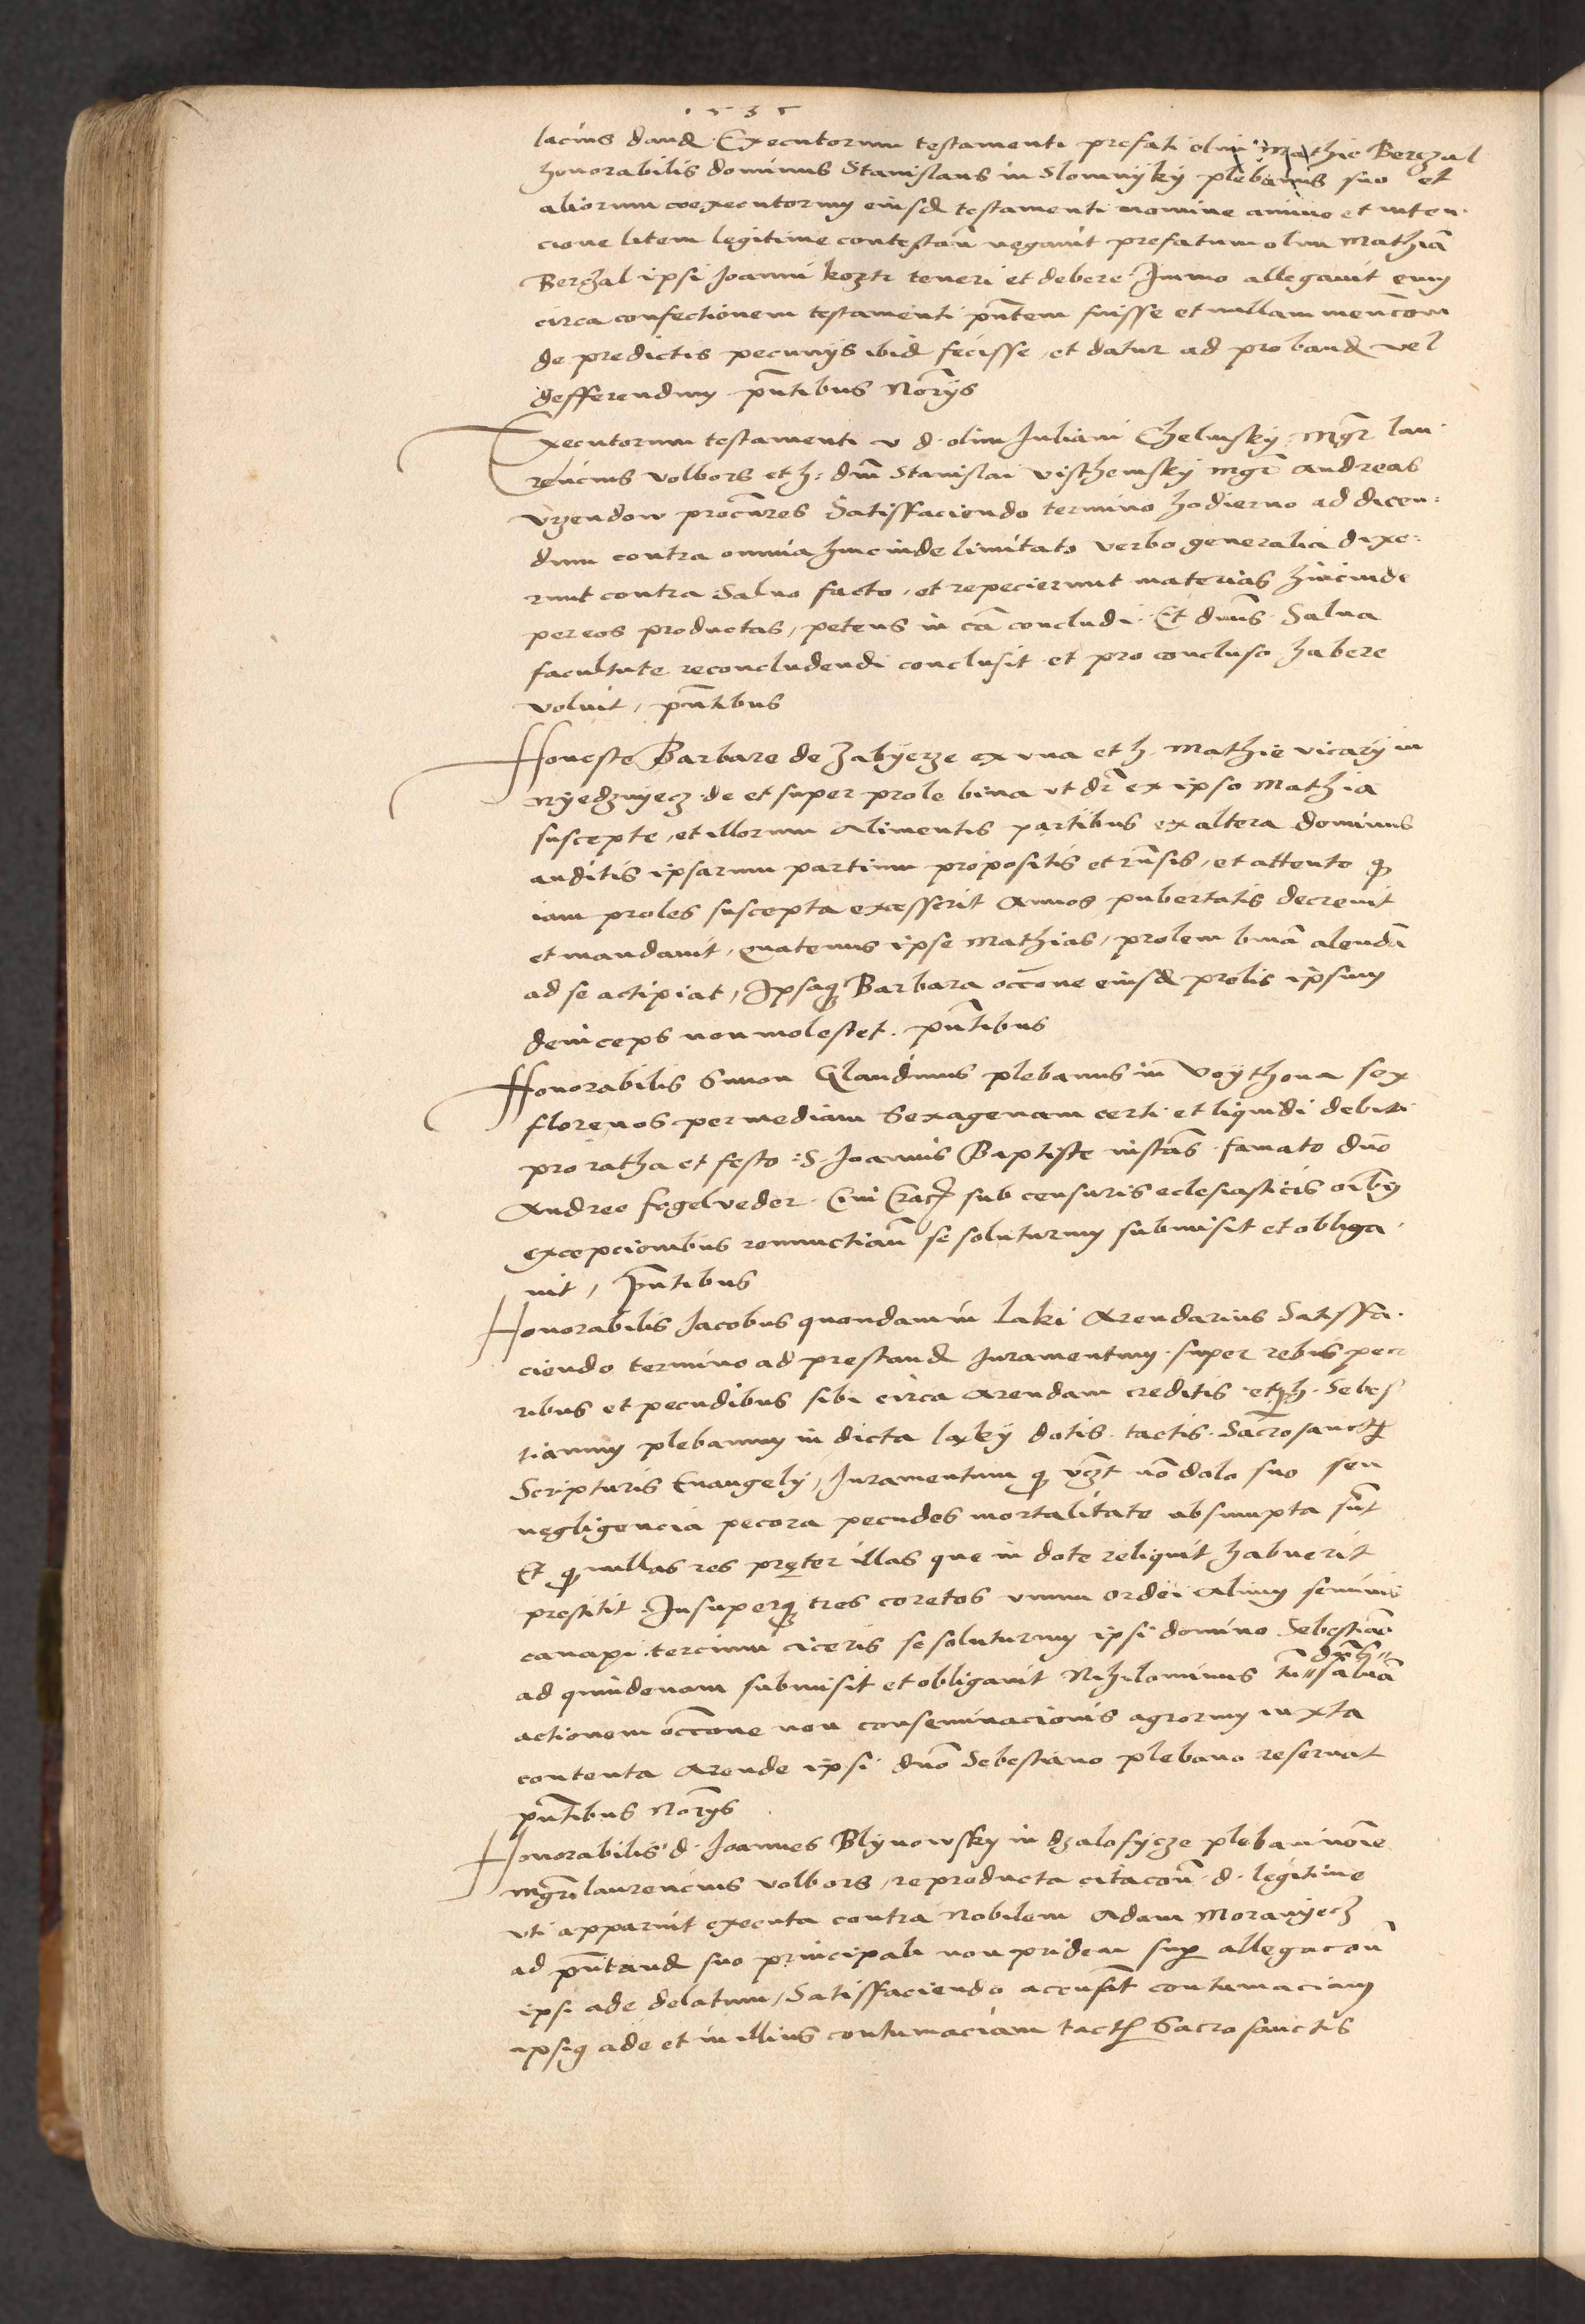 1535
lacius dand Executorum testamenti prefati olim Mathie Bergzal
honorabilis dominus Stanislaus in Slomnyky plebanus suo et
aliorum coexecutorum eiusd testamenti nomine animo et inten-
cione litem legitime contestan negavit prefatum olim Mathia
Bergzal ipsi Joanni teneri et debere Immo allegavit eum
circa confectionem testamenti pntem fuisse et nullam mencom
de predictis pecunys ibid fecisse, et datur ad proband vel
defferendum pntibus Norys
Executorum testamenti v d olim Juliani Chelmsky Mgr lau-
rencius Volbors et h: dni Stanislai Visthemsky mgr Andreas
Vrzendow procures Satisffaciendo termino hodierno ad dicen-
dum contra omnia hincinde limitato verbo generalia dixe-
runt contra Salvo facto, et repecierunt materias hincinde
per eos productas, petens in ca concludi Et dnus Salva
facultate reconcludendi conclusit et pro concluso habere
voluit, pntibus
Honeste Barbare de Zabyerze ex una et h Mathie vicary in
Nyedzwyecz de et super prole bina ut dr ex ipso Mathia
suscepte, et illorum alimentis partibus ex altera dominus
auditis ipsarum partium propositis et rnsis, et attento q
iam proles suscepta excesserit annos pubertatis decrevit
et mandavit, quatenus ipse Mathias, prolem bina alenda
ad se actipiat, Ipsaq Barbara occone eiusd prolis ipsum
deinceps non molestet. pntibus
Honorabilis Simon Glandinus plebanus in Voythova sex
florenos per mediam Sexagenam certi et liquidi debiti
pro ratha et festo S. Joannis Baptiste instan famato dno
Andree fogelveder Civi Crac sub censuris eclesiasticis oibus
excepcionibus renunctian se soluturum submisit et obliga
vit, pntibus
Honorabilis Jacobus quondam in Laki Arendarius Satisffa-
ciendo termino ad prestand Juramentum super rebus peco
ribus et pecudibus sibi circa arendam creditis et h. Sebes
tianum plebanum in dicta laky dotis tactis Sacrosanct
Scripturis Evangely, Juramentum q no dolo suo seu
negligencia pecora pecudes mortalitate absumpta sunt
Et q nullas res preter illas que in dote reliquit habuerit
prestitit. Insuperq tres coretos unum ordei alium seminis
canapi tercium ciceris se soluturum ipsi domino Sebestiano
ad quindenam submisit et obligavit Nihilominus tn salva
actionem occone non conseminacionis agrorum iuxta
contenta arende ipsi dno Sebestiano plebano reservat
pntibus Norys
Honorabilis d. Joannes Blynowsky in dzalosycze plebani noie
mgr laurencius volbors, reproducta citacon d. legitime
uti apparuit executa contra Nobilem Adam Morawyecz
ad pntand suo principali non pridem sup allegacon
ipsi ade delatum, Satisffaciendo accusat contumaciam
ipsiq ade et in illius contumaciam tactis Sacrosanctis